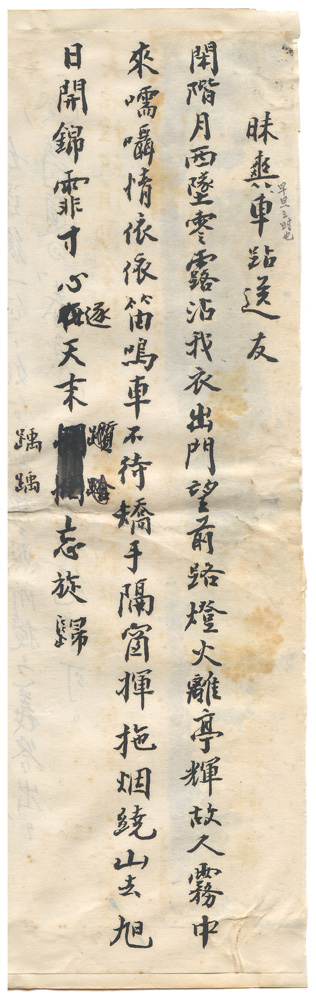 昧爽車站送友
早旦之时也
閑階月西墜零露沾我衣出門望前路燈火離亭輝故人霧中
來嚅囁情依依笛鳴車不待矯手隔窗揮拖烟繞山去旭
日開錦霏寸心逐天末
忘旋歸
踽踽